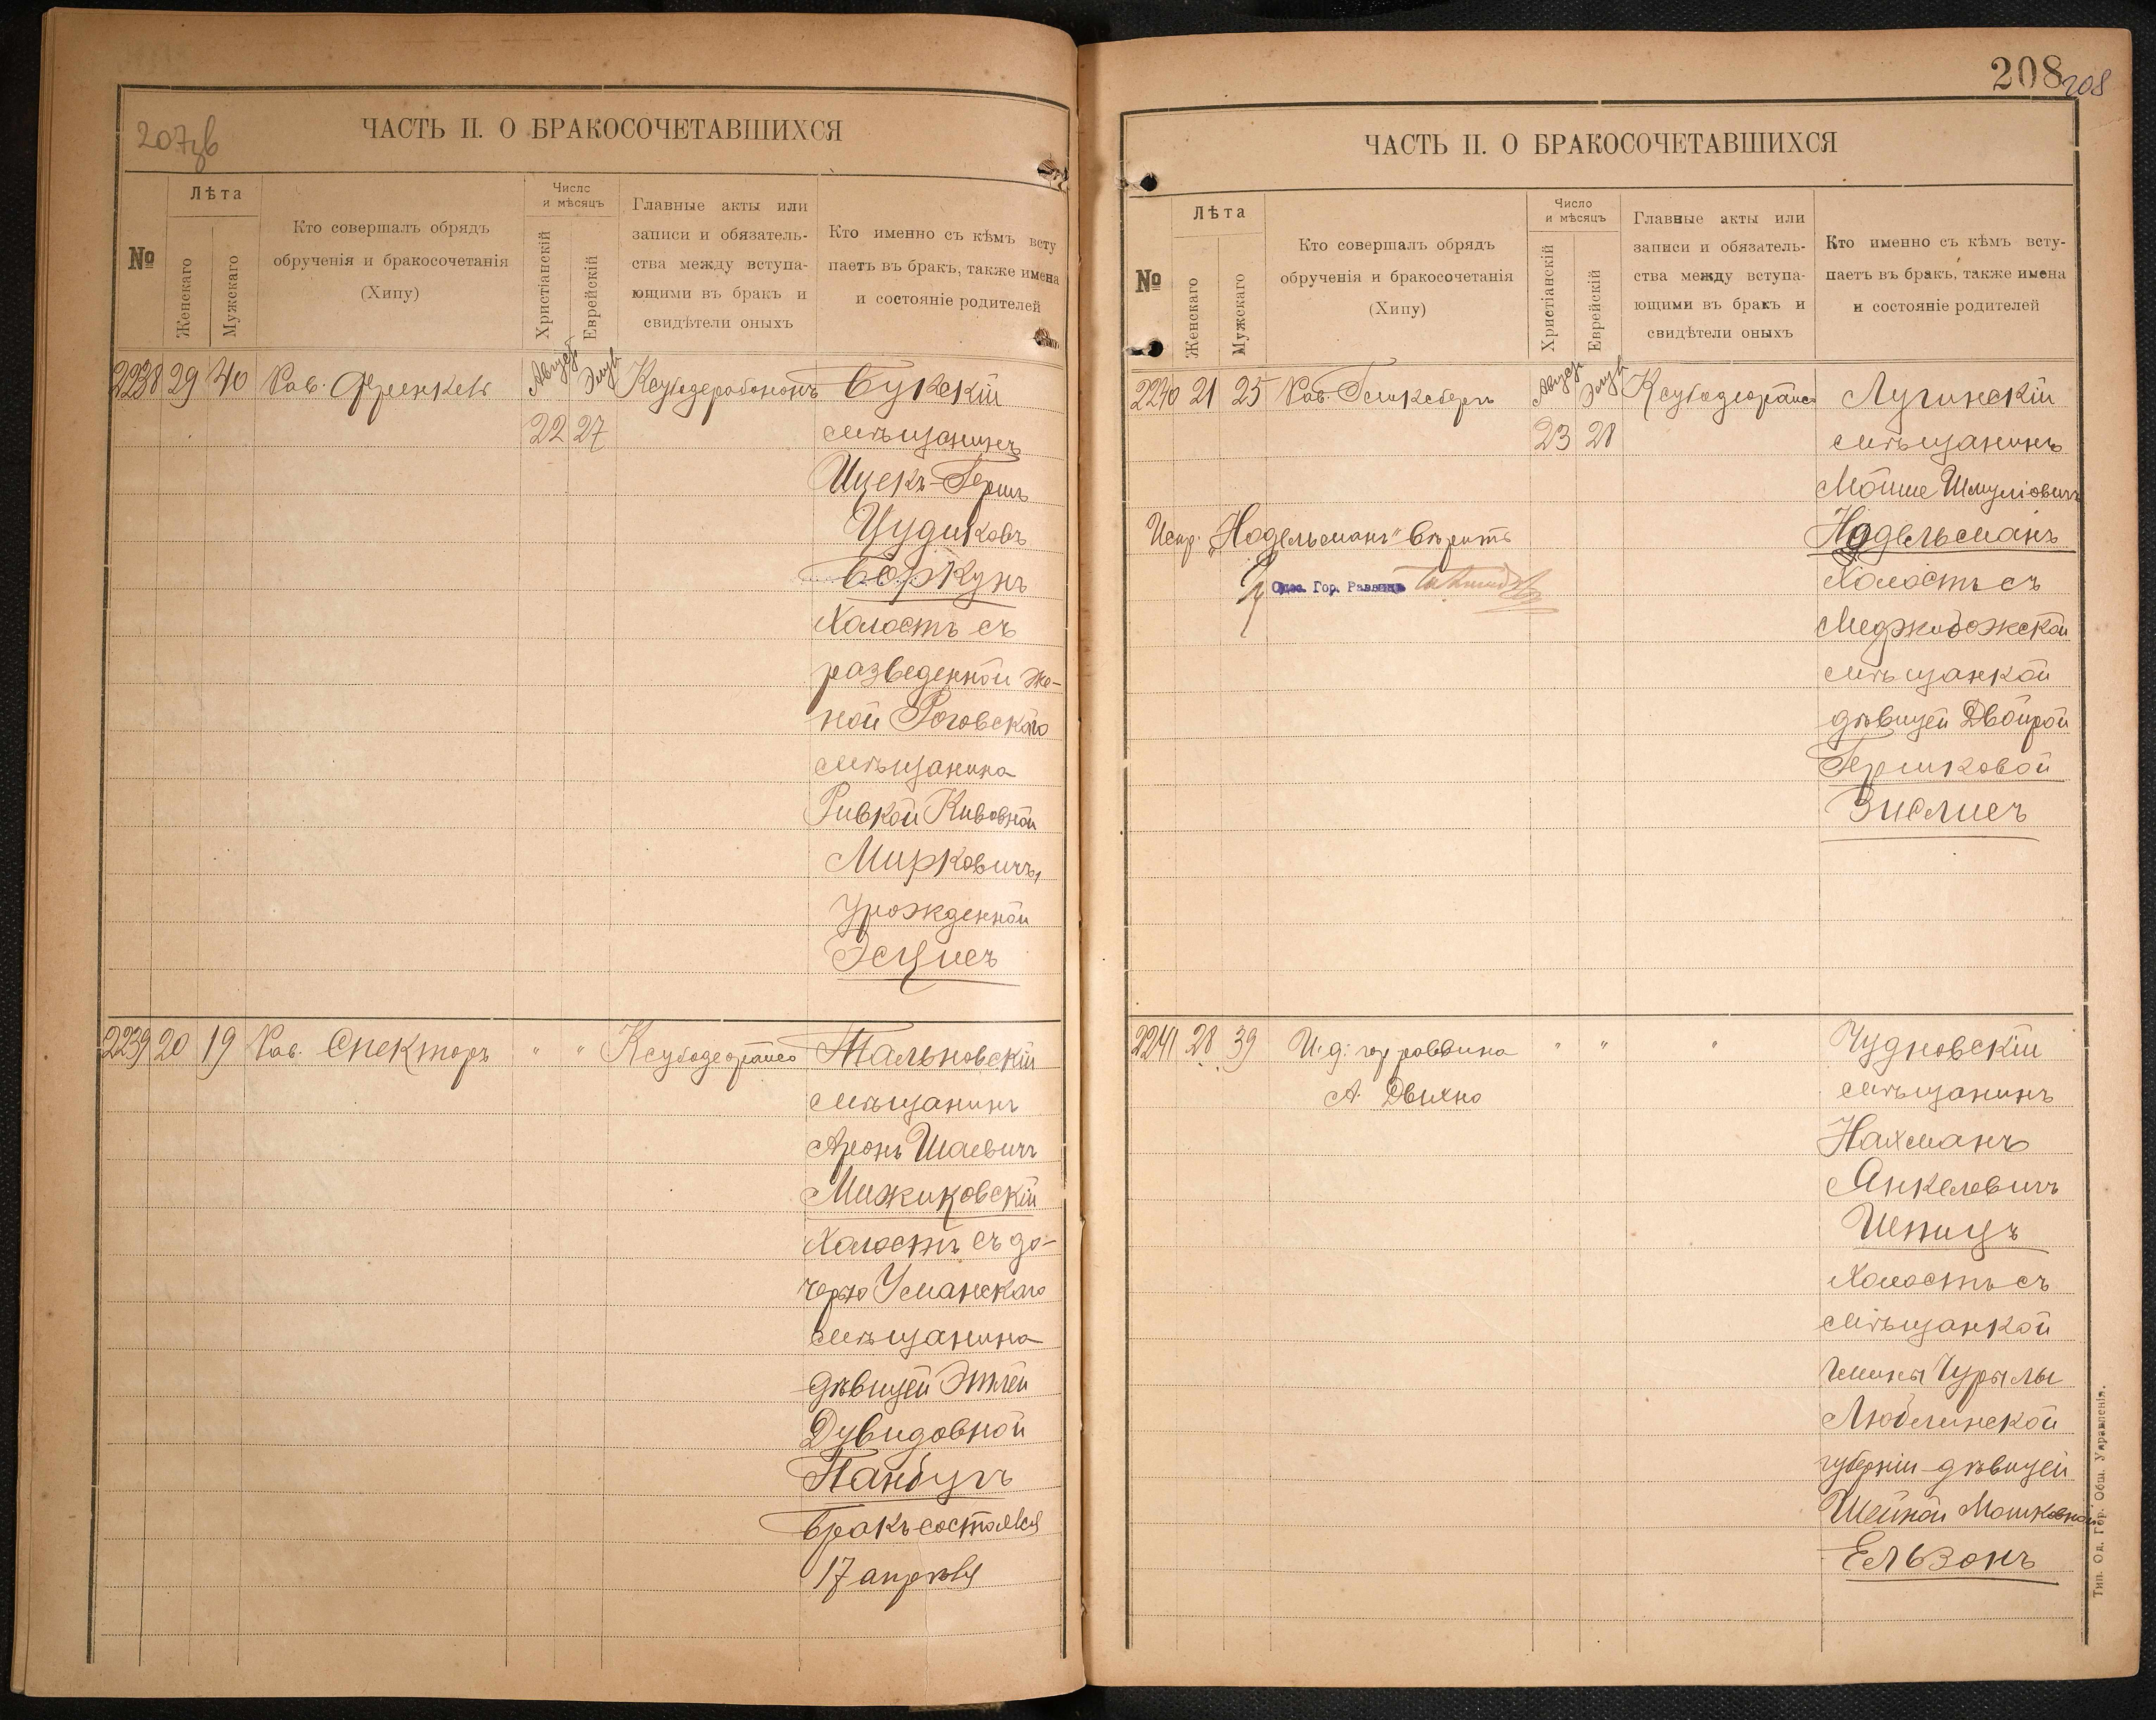 207зв
ЧАСТЬ II. О БРАКОСОЧЕТАВШИХСЯ
№
Лѣта
Женскаго
Мужскаго
Кто совершалъ обрядъ
обрученія и бракосочетанія
(Хипу)
Число
и мѣсяцъ
Христіанскій
Еврейскій
Главные акты или
записи и обязатель-
ства между вступа-
ющими въ бракъ и
свидѣтели оныхъ
Кто именно съ кѣмъ всту
паетъ въ бракъ, также имена
и состояніе родителей
2238 29 40 Рав. Френкель
22 27
мѣщанинъ
Ицекъ-Гершъ
Боркунъ
Холостъ съ
разведенной же-
ной Роговскаго
мѣщанина
Ривкой Кивовной
Мирковичъ,
урожденной
2239 20 19 Рав. Спекторъ " " Тальновскій
мѣщанинъ
Аронъ Шаевичъ
Мижиковскій
Холостъ съ до-
черью Уманскаго
мѣщанина
дѣвицей Этлей
Дувидовной
Бракъ состоялся
17 апрѣля
208 208
ЧАСТЬ II. О БРАКОСОЧЕТАВШИХСЯ
№
Лѣта
Женскаго
Мужскаго
Кто совершалъ обрядъ
обрученія и бракосочетанія
(Хипу)
Число
и мѣсяцъ
Христіанскій
Еврейскій
Главные акты или
записи и обязатель-
ства между вступа-
ющими въ бракъ и
свидѣтели оныхъ
Кто именно съ кѣмъ всту-
паетъ въ бракъ, также имена
и состояніе родителей
2240 21 25 Рав. Гинксбергъ Лугинскій
23 28 мѣщанинъ
Мойше Шмуліовичъ
Испр. „Нодельманъ" вѣрить
Нодельманъ
Одес. Гор. Раввинъ
Холостъ съ
Меджибожской
мѣщанкой
дѣвицей Двойрой
Гершковой
Зислисъ
2241 28 39 И. д. гор раввина " " " Чудновскій
А. Двихно мѣщанинъ
Нахманъ
Янкелевичъ
Шпицъ
Холостъ съ
мѣщанкой
гмины Цурылы
Люблинской
губерніи дѣвицей
Шейной Мошковной
Ельзонъ
Тип. Од. Гор. Общ. Управленія.